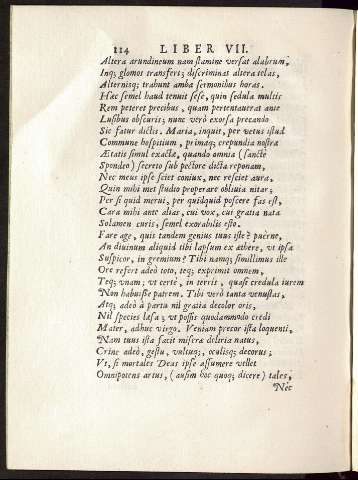 114 LIBER VII.
Altera arundineum nam stamine versat alabrum,
Inq; glomos transfert; discriminat altera telas,
Alternisq; trahunt amba sermonibus horas.
Hæc semel haud tenuit sese, quin sedula multis
Rem peteret precibus, quam pertentaverat ante
Lusibus obscuris; nunc verò exorsa precando
Sic fatur dictis. Maria, inquit, per vetus istud
Commune hospitium, primaq; crepundia nostra
Ætatis simul exactæ, quando omnia (sanctè
Spondeo) secreto sub pectore dicta reponam,
Nec meus ipse sciet coniux, nec resciet aura,
Quin mihi met studio properare oblivia nitar;
Per si quid merui, per quidquid poscere fas est,
Cara mihi ante alias, cui vox, cui gratia nata
Solamen curis, semel exorabilis esto.
Fare age, quis tandem genius tuus iste è puero,
An divinum aliquid tibi lapsum ex æthere, vt ipsa
Suspicor, in gremium? Tibi namq; simillimus ille
Ore refert adeò toto, teq; exprimit omnem,
Teq; vnam; vt certè, in terris, quasi credula iurem
Non habuisse patrem. Tibi verò tanta venustas,
Atq; adeò à partu nil gratia decolor oris,
Nil species læsa; vt possis quodammodo credi
Mater, adhuc virgo. Veniam precor ista loquenti,
Nam tuus ista facit miseræ deliria natus,
Crine adeò, gestu, vultuq;, oculisq; decorus;
Vt, si mortales Deus ipse assumere vellet
Omnipotens artus, (ausim hoc quoq; dicere) tales,
Nec